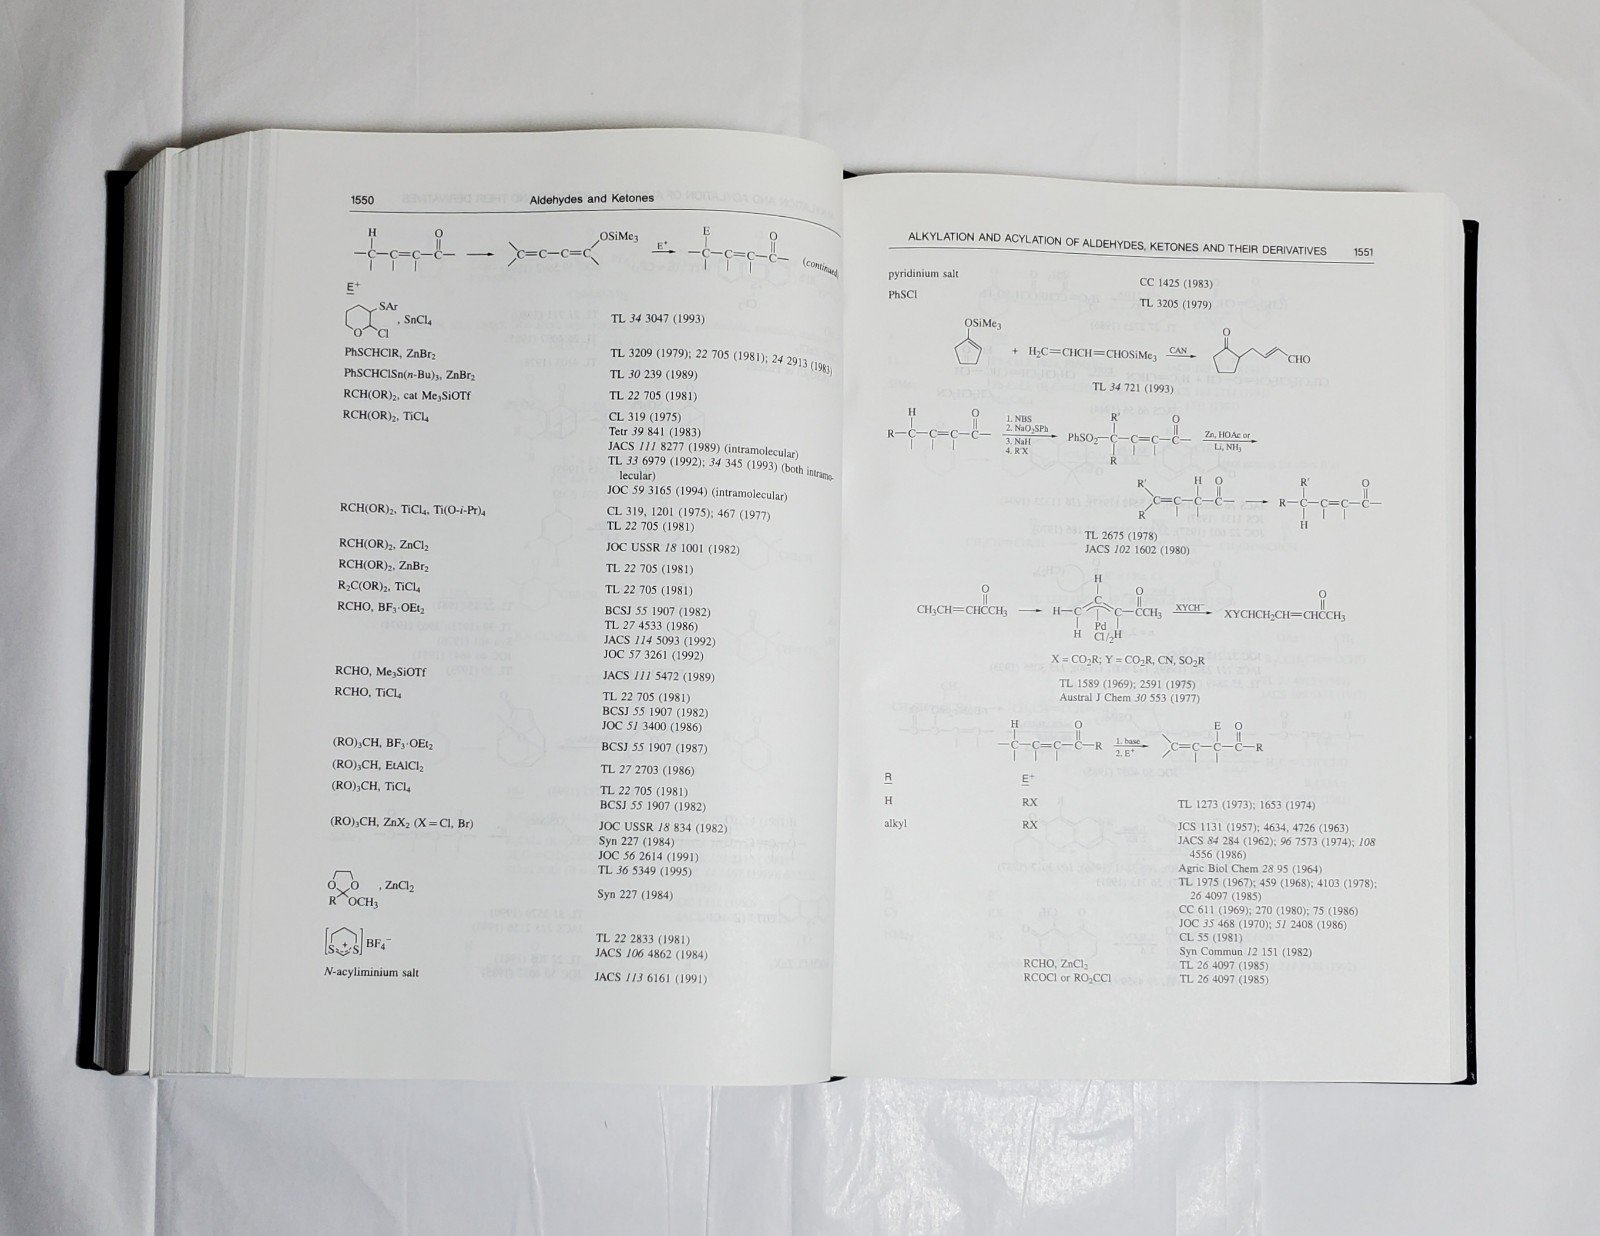 1550 Aldehydes and Ketones
H O OSiMe₃ E O
–C–C=C–C– → C=C–C=C E⁺ → –C–C=C–C– (continued)
E⁺
SAr
O Cl , SnCl₄ TL 34 3047 (1993)
PhSCHClR, ZnBr₂ TL 3209 (1979); 22 705 (1981); 24 2913 (1983)
PhSCHClSn(n-Bu)₃, ZnBr₂ TL 30 239 (1989)
RCH(OR)₂, cat Me₃SiOTf TL 22 705 (1981)
RCH(OR)₂, TiCl₄ CL 319 (1975)
Tetr 39 841 (1983)
JACS 111 8277 (1989) (intramolecular)
TL 33 6979 (1992); 34 345 (1993) (both intramo-
lecular)
JOC 59 3165 (1994) (intramolecular)
RCH(OR)₂, TiCl₄, Ti(O-i-Pr)₄ CL 319, 1201 (1975); 467 (1977)
TL 22 705 (1981)
RCH(OR)₂, ZnCl₂ JOC USSR 18 1001 (1982)
RCH(OR)₂, ZnBr₂ TL 22 705 (1981)
R₂C(OR)₂, TiCl₄ TL 22 705 (1981)
RCHO, BF₃·OEt₂ BCSJ 55 1907 (1982)
TL 27 4533 (1986)
JACS 114 5093 (1992)
JOC 57 3261 (1992)
RCHO, Me₃SiOTf JACS 111 5472 (1989)
RCHO, TiCl₄ TL 22 705 (1981)
BCSJ 55 1907 (1982)
JOC 51 3400 (1986)
(RO)₃CH, BF₃·OEt₂ BCSJ 55 1907 (1987)
(RO)₃CH, EtAlCl₂ TL 27 2703 (1986)
(RO)₃CH, TiCl₄ TL 22 705 (1981)
BCSJ 55 1907 (1982)
(RO)₃CH, ZnX₂ (X = Cl, Br) JOC USSR 18 834 (1982)
Syn 227 (1984)
JOC 56 2614 (1991)
TL 36 5349 (1995)
O O , ZnCl₂ Syn 227 (1984)
R OCH₃
[S + S] BF₄⁻ TL 22 2833 (1981)
JACS 106 4862 (1984)
N-acyliminium salt JACS 113 6161 (1991)
ALKYLATION AND ACYLATION OF ALDEHYDES, KETONES AND THEIR DERIVATIVES 1551
pyridinium salt CC 1425 (1983)
PhSCl TL 3205 (1979)
OSiMe₃ O
+ H₂C=CHCH=CHOSiMe₃ CAN → CHO
TL 34 721 (1993)
H O 1. NBS R' O
R–C–C=C–C– 2. NaO₂SPh PhSO₂–C–C=C–C– Zn, HOAc or
3. NaH R Li, NH₃
4. R'X
R' H O R' O
C=C–C–C– → R–C–C=C–C–
R H
TL 2675 (1978)
JACS 102 1602 (1980)
H
O C O O
CH₃CH=CHCCH₃ → H–C C–CCH₃ XYCH⁻ → XYCHCH₂CH=CHCCH₃
H Pd H
Cl/2
X = CO₂R; Y = CO₂R, CN, SO₂R
TL 1589 (1969); 2591 (1975)
Austral J Chem 30 553 (1977)
H O E O
–C–C=C–C–R 1. base C=C–C–C–R
2. E⁺
R E⁺
H RX TL 1273 (1973); 1653 (1974)
alkyl RX JCS 1131 (1957); 4634, 4726 (1963)
JACS 84 284 (1962); 96 7573 (1974); 108
4556 (1986)
Agric Biol Chem 28 95 (1964)
TL 1975 (1967); 459 (1968); 4103 (1978);
26 4097 (1985)
CC 611 (1969); 270 (1980); 75 (1986)
JOC 35 468 (1970); 51 2408 (1986)
CL 55 (1981)
Syn Commun 12 151 (1982)
RCHO, ZnCl₂ TL 26 4097 (1985)
RCOCl or RO₂CCl TL 26 4097 (1985)